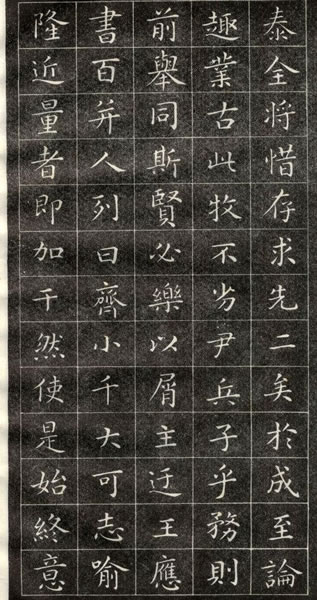 泰全將惜存求先二矣於成至論
趣業古此牧不劣尹兵子乎務則
前舉同斯賢必樂以屑主迂王應
書百并人列曰齊小千大可志喻
隆近量者即加于然使是始終意